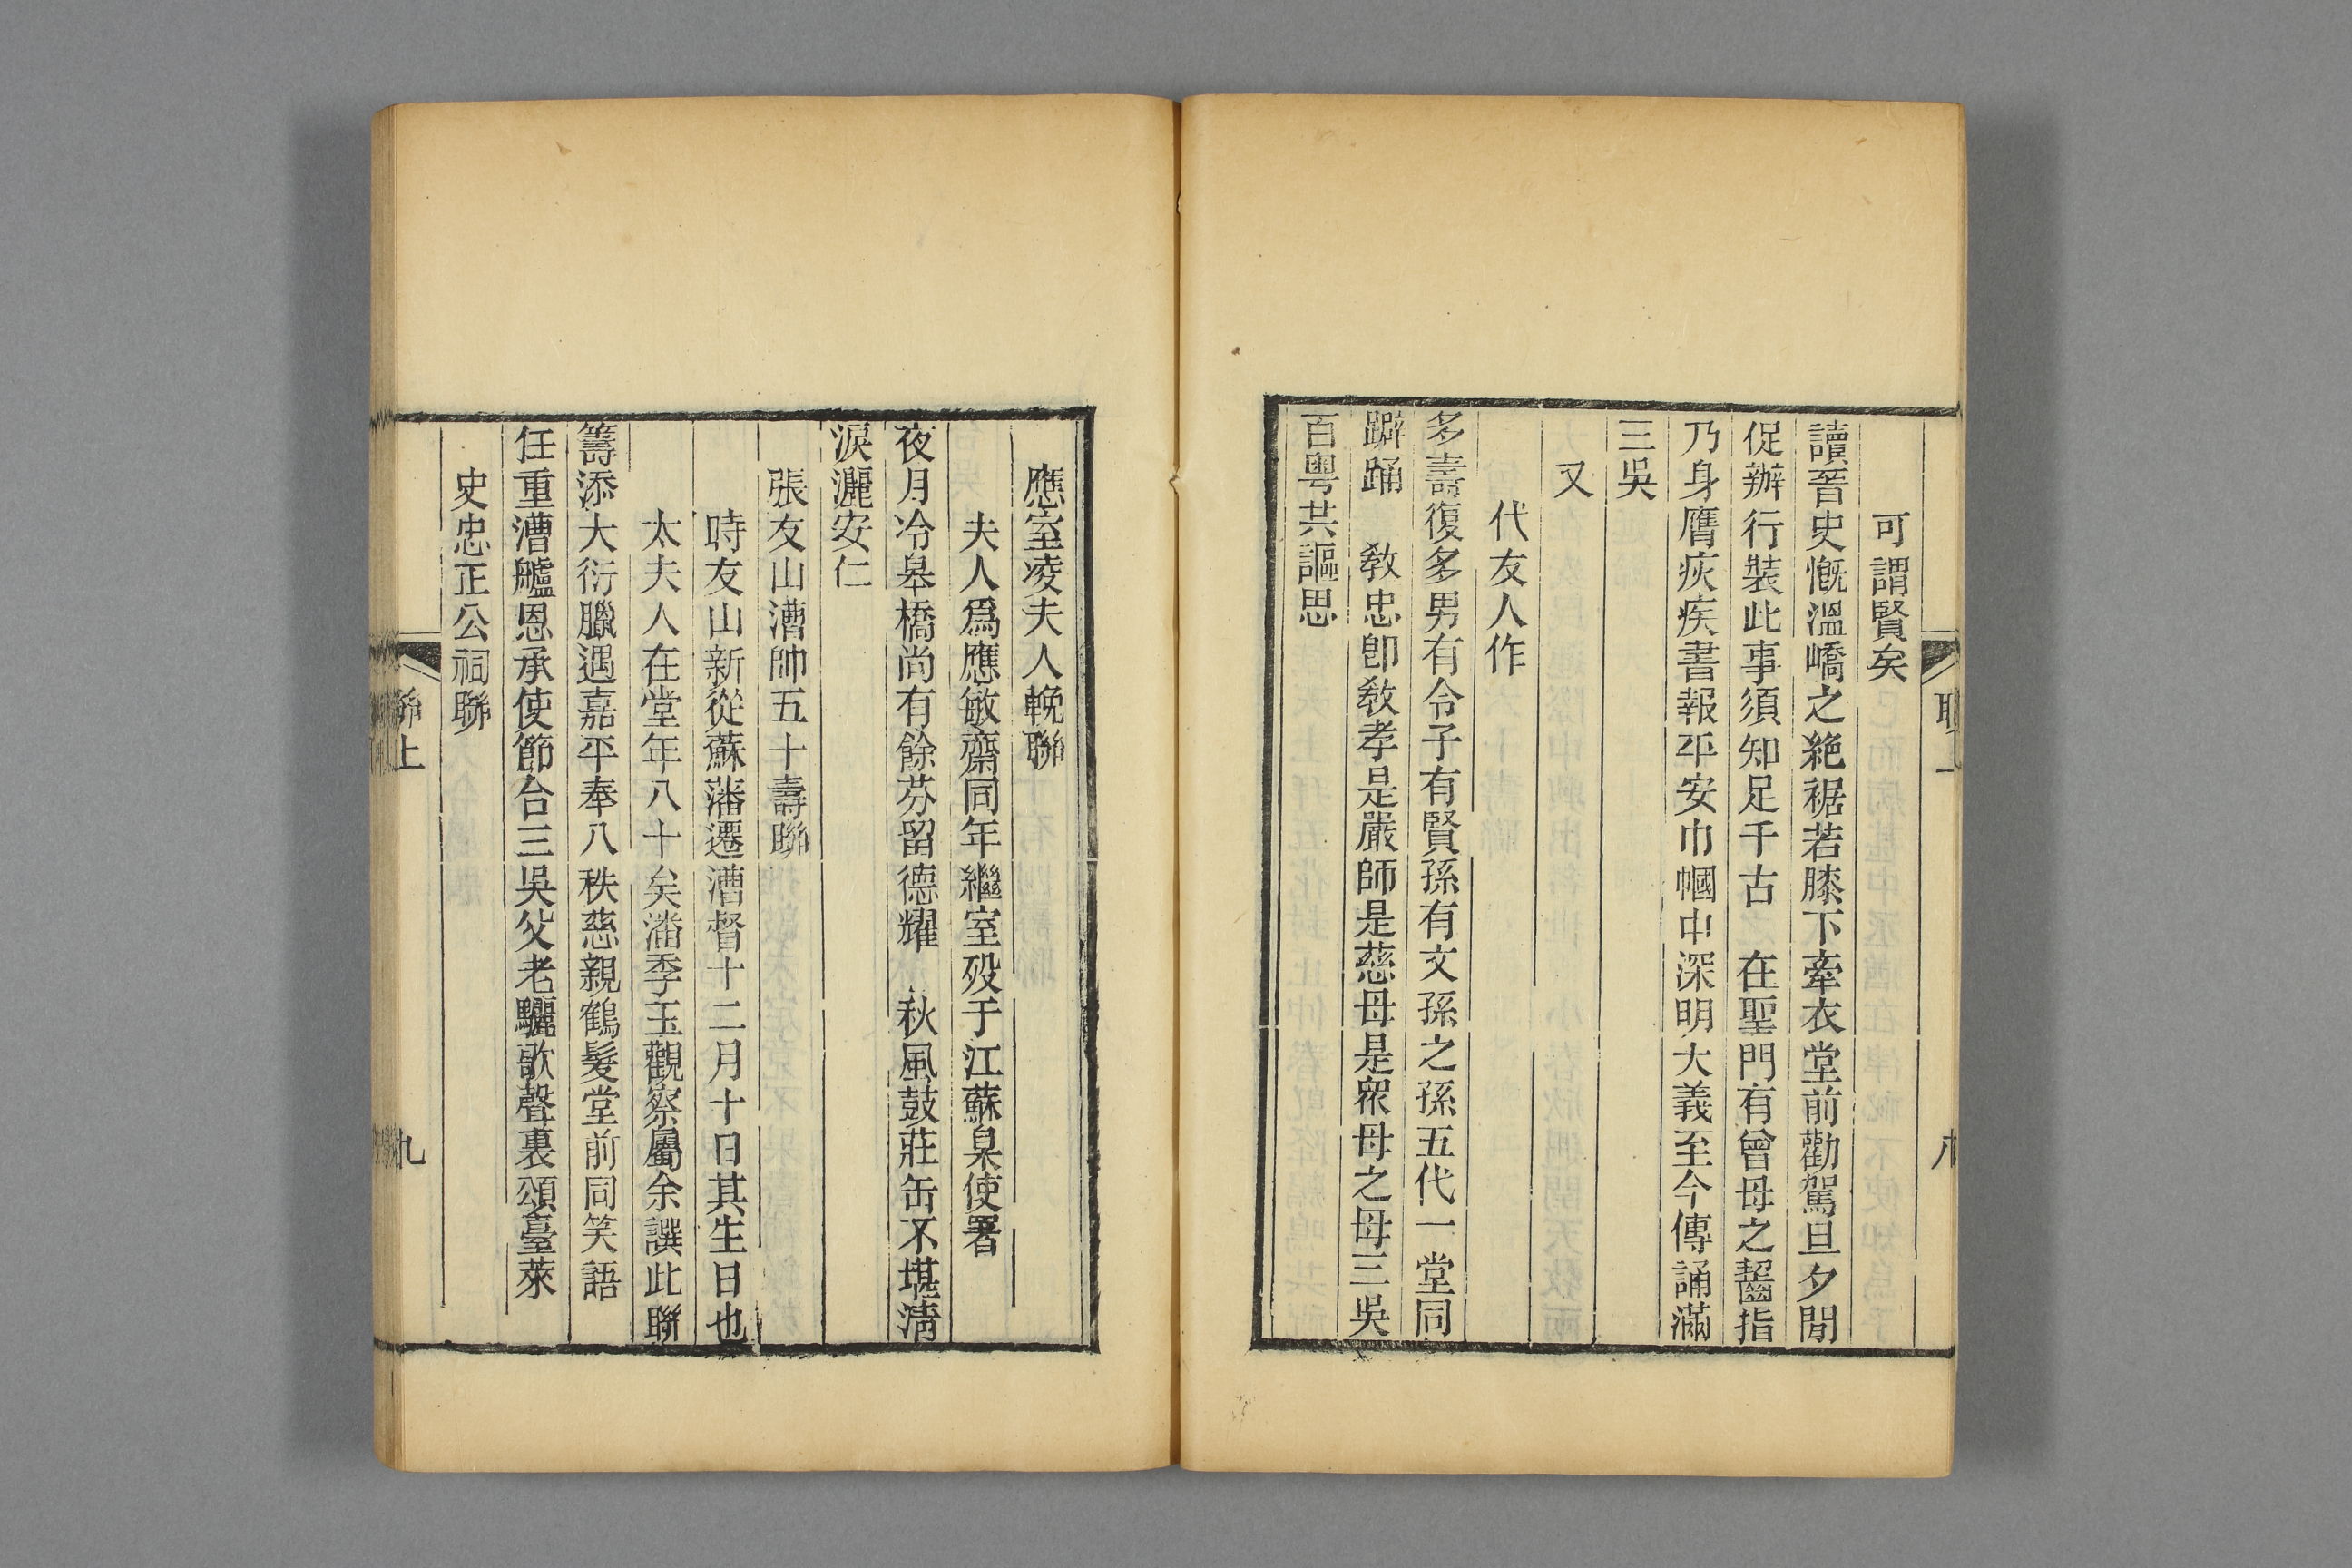 可謂賢矣
讀晉史慨溫嶠之絶裾若膝下牽衣堂前勸駕旦夕閒
促辦行裝此事須知足千古　在聖門有曾母之齧指
乃身膺疢疾書報平安巾幗中深明大義至今傳誦滿
三吳
又
代友人作
多壽復多男有令子有賢孫有文孫之孫五代一堂同
躃踊　敎忠卽敎孝是嚴師是慈母是衆母之母三吳
百粤共謳思
應室凌夫人輓聯
夫人爲應敏齋同年繼室殁于江蘇臬使署
夜月冷皋橋尚有餘芬留德耀　秋風鼓莊缶不堪淸
淚灑安仁
張友山漕帥五十壽聯
時友山新從蘇藩遷漕督十二月十日其生日也
太夫人在堂年八十矣潘季玉觀察屬余譔此聯
籌添大衍臘遇嘉平奉八秩慈親鶴髮堂前同笑語
任重漕艫恩承使節合三吳父老驪歌聲裏頌臺萊
史忠正公祠聯
聯上
九